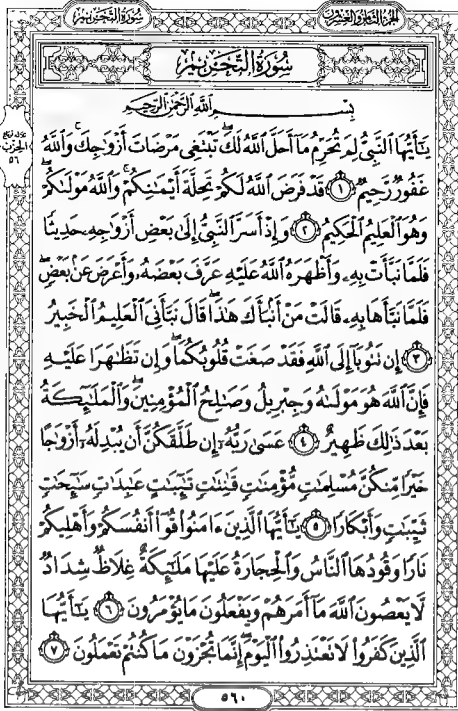 سُورَةُ التَّحْرِيمِ
الجُزْءُ الثَّامِنُ وَالعِشْرُونَ
سُورَةُ التَّحْرِيمِ
بِسْمِ اللَّهِ الرَّحْمَٰنِ الرَّحِيمِ
يَٰٓأَيُّهَا ٱلنَّبِىُّ لِمَ تُحَرِّمُ مَآ أَحَلَّ ٱللَّهُ لَكَ ۖ تَبْتَغِى مَرْضَاتَ أَزْوَٰجِكَ ۚ وَٱللَّهُ
غَفُورٌ رَّحِيمٌ ١ قَدْ فَرَضَ ٱللَّهُ لَكُمْ تَحِلَّةَ أَيْمَٰنِكُمْ ۚ وَٱللَّهُ مَوْلَىٰكُمْ ۖ
وَهُوَ ٱلْعَلِيمُ ٱلْحَكِيمُ ٢ وَإِذْ أَسَرَّ ٱلنَّبِىُّ إِلَىٰ بَعْضِ أَزْوَٰجِهِۦ حَدِيثًا
فَلَمَّا نَبَّأَتْ بِهِۦ وَأَظْهَرَهُ ٱللَّهُ عَلَيْهِ عَرَّفَ بَعْضَهُۥ وَأَعْرَضَ عَنۢ بَعْضٍ ۖ
فَلَمَّا نَبَّأَهَا بِهِۦ قَالَتْ مَنْ أَنۢبَأَكَ هَٰذَا ۖ قَالَ نَبَّأَنِىَ ٱلْعَلِيمُ ٱلْخَبِيرُ
٣ إِن تَتُوبَآ إِلَى ٱللَّهِ فَقَدْ صَغَتْ قُلُوبُكُمَا ۖ وَإِن تَظَٰهَرَا عَلَيْهِ
فَإِنَّ ٱللَّهَ هُوَ مَوْلَىٰهُ وَجِبْرِيلُ وَصَٰلِحُ ٱلْمُؤْمِنِينَ ۖ وَٱلْمَلَٰٓئِكَةُ
بَعْدَ ذَٰلِكَ ظَهِيرٌ ٤ عَسَىٰ رَبُّهُۥٓ إِن طَلَّقَكُنَّ أَن يُبْدِلَهُۥٓ أَزْوَٰجًا
خَيْرًا مِّنكُنَّ مُسْلِمَٰتٍ مُّؤْمِنَٰتٍ قَٰنِتَٰتٍ تَٰٓئِبَٰتٍ عَٰبِدَٰتٍ سَٰٓئِحَٰتٍ
ثَيِّبَٰتٍ وَأَبْكَارًا ٥ يَٰٓأَيُّهَا ٱلَّذِينَ ءَامَنُوا۟ قُوٓا۟ أَنفُسَكُمْ وَأَهْلِيكُمْ
نَارًا وَقُودُهَا ٱلنَّاسُ وَٱلْحِجَارَةُ عَلَيْهَا مَلَٰٓئِكَةٌ غِلَاظٌ شِدَادٌ
لَّا يَعْصُونَ ٱللَّهَ مَآ أَمَرَهُمْ وَيَفْعَلُونَ مَا يُؤْمَرُونَ ٦ يَٰٓأَيُّهَا
ٱلَّذِينَ كَفَرُوا۟ لَا تَعْتَذِرُوا۟ ٱلْيَوْمَ ۖ إِنَّمَا تُجْزَوْنَ مَا كُنتُمْ تَعْمَلُونَ ٧
الحِزْب
٥٦
٥٦٠